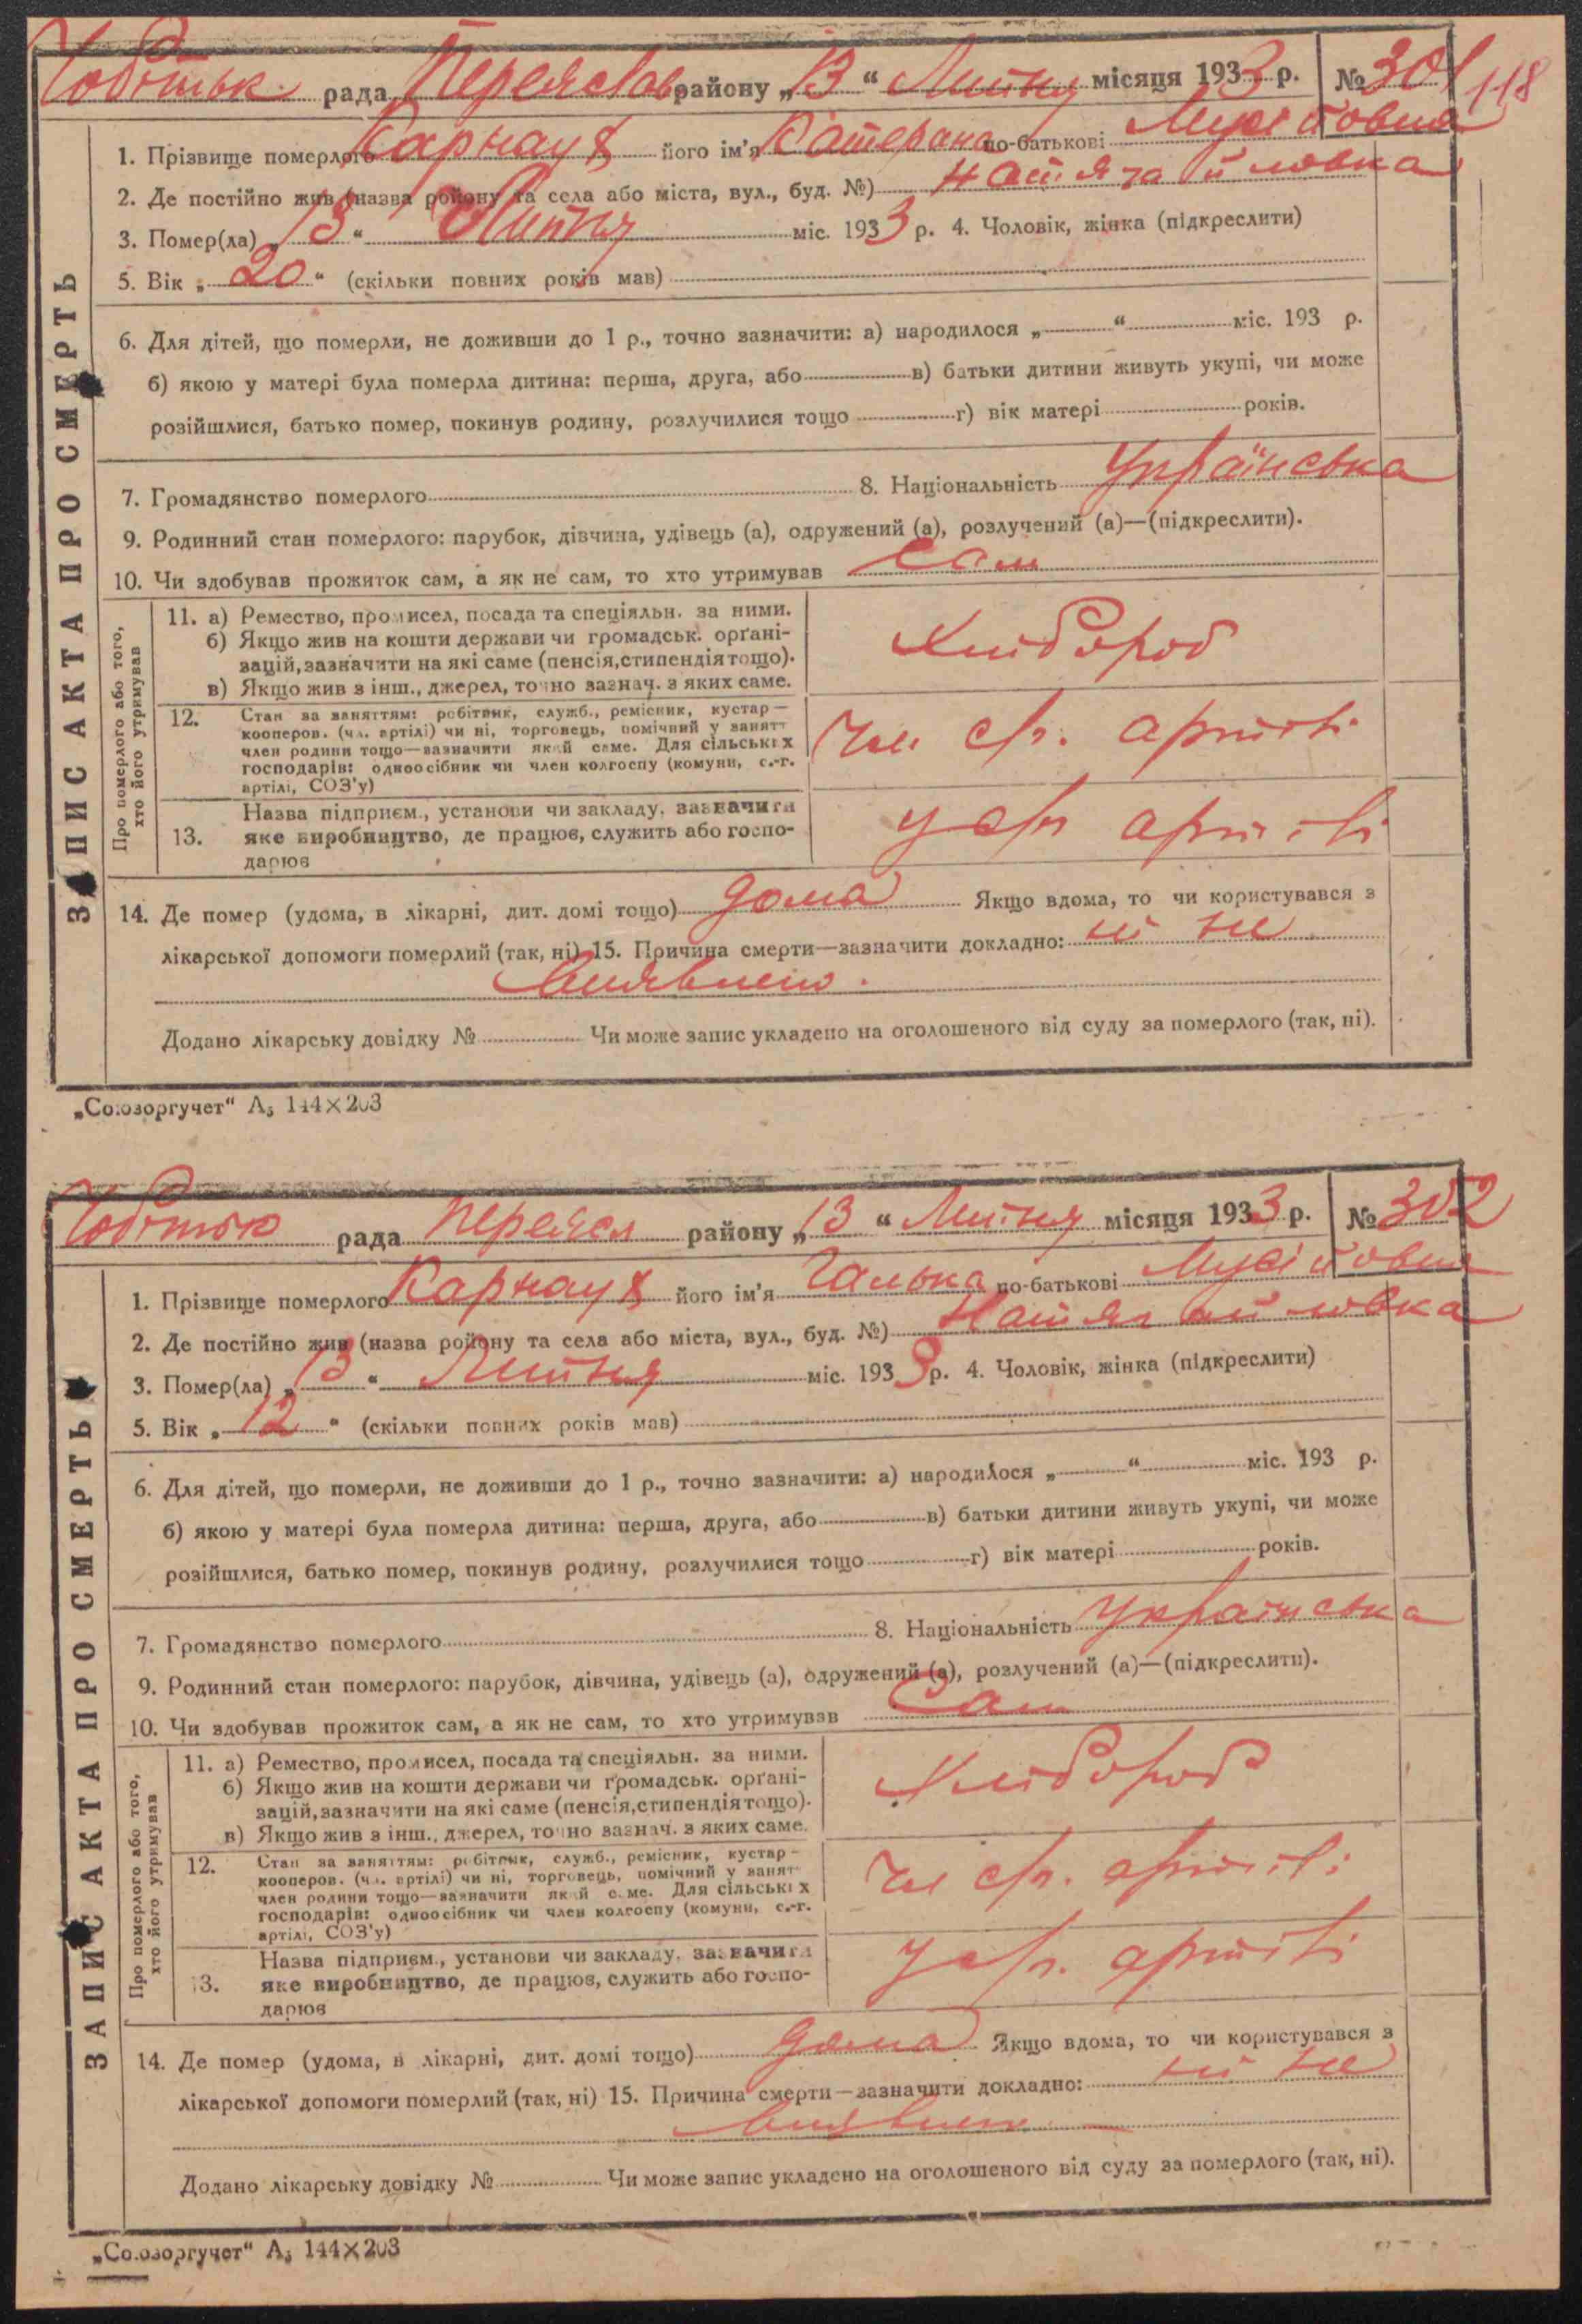 рада Переяслав району „13“ Липня місяця 1933 р. № 301
118
1. Прізвище померлого Карнаух його ім'я Катерина по-батькові Мусіївна
2. Де постійно жив (назва району та села або міста, вул., буд. №)
3. Помер(ла) „13“ Липня міс. 1933 р. 4. Чоловік, жінка (підкреслити)
5. Вік „20“ (скільки повних років мав)
6. Для дітей, що померли, не доживши до 1 р., точно зазначити: а) народилося „ “ міс. 193 р.
б) якою у матері була померла дитина: перша, друга, або в) батьки дитини живуть укупі, чи може
розійшлися, батько помер, покинув родину, розлучилися тощо г) вік матері років.
7. Громадянство померлого 8. Національність Українська
9. Родинний стан померлого: парубок, дівчина, удівець (а), одружений (а), розлучений (а)—(підкреслити).
10. Чи здобував прожиток сам, а як не сам, то хто утримував сам
ЗАПИС АКТА ПРО СМЕРТЬ
Про померлого або того,
хто його утримував
11. а) Ремество, промисел, посада та спеціяльн. за ними.
б) Якщо жив на кошти держави чи громадськ. орґані-
зацій, зазначити на які саме (пенсія, стипендія тощо).
в) Якщо жив з інш., джерел, точно зазнач. з яких саме.
Хлібороб
12. Стан за заняттям: робітник, служб., ремісник, кустар—
кооперов. (чл. артілі) чи ні, торговець, помічний у занятт
член родини тощо—зазначити який саме. Для сільських
господарів: одноосібник чи член колгоспу (комуни, с.-г.
артілі, СОЗ'у)
чл с/г. артілі
13. Назва підприєм., установи чи закладу, зазначити
яке виробництво, де працює, служить або госпо-
дарює
у с/г артілі
14. Де помер (удома, в лікарні, дит. домі тощо) дома Якщо вдома, то чи користувався з
лікарської допомоги померлий (так, ні) 15. Причина смерти—зазначити докладно: ні не
виявлено.
Додано лікарську довідку № Чи може запис укладено на оголошеного від суду за померлого (так, ні).
„Союзоргучет“ А₅ 144×203
рада Переясл району „13“ Липня місяця 1933 р. № 302
1. Прізвище померлого Карнаух його ім'я Галька по-батькові Мусіївна
2. Де постійно жив (назва району та села або міста, вул., буд. №)
3. Помер(ла) „13“ Липня міс. 1933 р. 4. Чоловік, жінка (підкреслити)
5. Вік „12“ (скільки повних років мав)
6. Для дітей, що померли, не доживши до 1 р., точно зазначити: а) народилося „ “ міс. 193 р.
б) якою у матері була померла дитина: перша, друга, або в) батьки дитини живуть укупі, чи може
розійшлися, батько помер, покинув родину, розлучилися тощо г) вік матері років.
7. Громадянство померлого 8. Національність Українська
9. Родинний стан померлого: парубок, дівчина, удівець (а), одружений (а), розлучений (а)—(підкреслити).
10. Чи здобував прожиток сам, а як не сам, то хто утримував Сам
ЗАПИС АКТА ПРО СМЕРТЬ
Про померлого або того,
хто його утримував
11. а) Ремество, промисел, посада та спеціяльн. за ними.
б) Якщо жив на кошти держави чи громадськ. орґані-
зацій, зазначити на які саме (пенсія, стипендія тощо).
в) Якщо жив з інш., джерел, точно зазнач. з яких саме.
Хлібороб
12. Стан за заняттям: робітник, служб., ремісник, кустар—
кооперов. (чл. артілі) чи ні, торговець, помічний у занят
член родини тощо—зазначити який саме. Для сільських
господарів: одноосібник чи член колгоспу (комуни, с.-г.
артілі, СОЗ'у)
чл с/г. артілі
13. Назва підприєм., установи чи закладу, зазначити
яке виробництво, де працює, служить або госпо-
дарює
у с/г. артілі
14. Де помер (удома, в лікарні, дит. домі тощо) дома Якщо вдома, то чи користувався з
лікарської допомоги померлий (так, ні) 15. Причина смерти—зазначити докладно: ні не
виявлено
Додано лікарську довідку № Чи може запис укладено на оголошеного від суду за померлого (так, ні).
„Союзоргучет“ А₅ 144×203